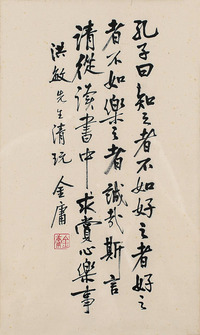 孔子曰知之者不如好之者好之
者不如樂之者誠哉斯言
請從讀書中求賞心樂事
洪敏先生清玩
金庸